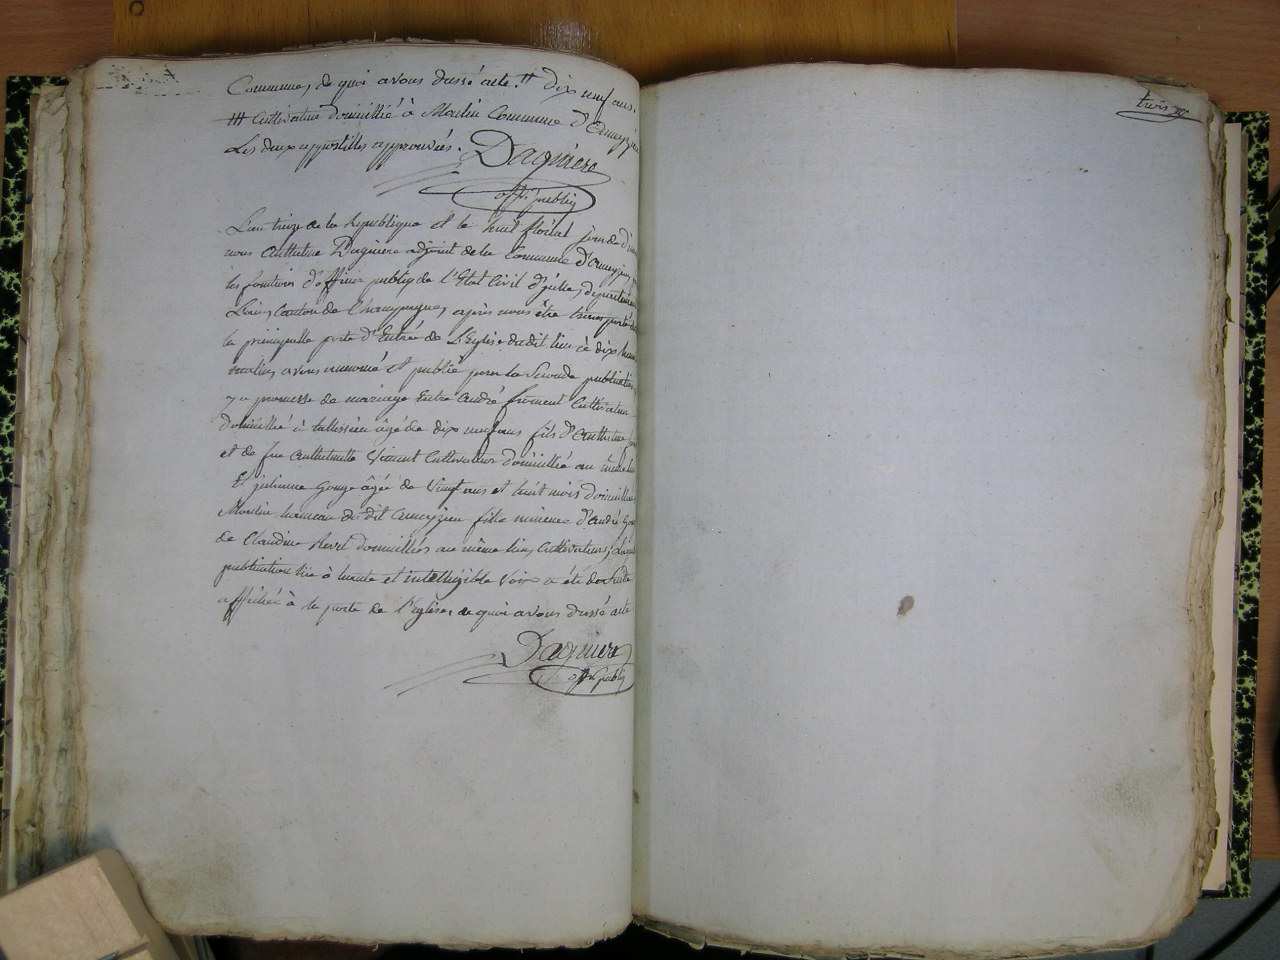 Commune, de quoi avons dressé acte. # dix neuf ans.
### Cultivateur domicillié à Moulin Commune d'Ameyzieu
Les deux appostilles approuvées. Daguiere
offi publiq
L'an treize de la République et le huit floréal jour de
nous Anthelme Daguiere adjoint de la Commune d'Ameyzieu
les fonctions d'officier publiq de l'Etat Civil d'icelle, département
L'ain, Canton de Champagne, après nous être
la principalle porte d'Entrée de L'Eglise dudit lieu à dix heures
matin, avons annoncé et publié pour la Seconde publication
y a promesse de mariage Entre André froment Cultivateur
domicillié à tallissieu âgé de dix neuf ans fils d'Anthelme
et de fue Anthelmette Vincent Cultivateurs domicillié au même lieu
Et julienne Gonge âgée de Vingt ans et huit mois domicillié
Moulin hameau du dit Ameyzieu fille mineure d'André
de Claudine Revel domicilliés au même lieu, Cultivateurs,
publication lüe à haute et intelligible Voix a été de Suite
affichée à la porte de l'Eglise, de quoi avons dressé acte
Daguiere
offi publiq
trois